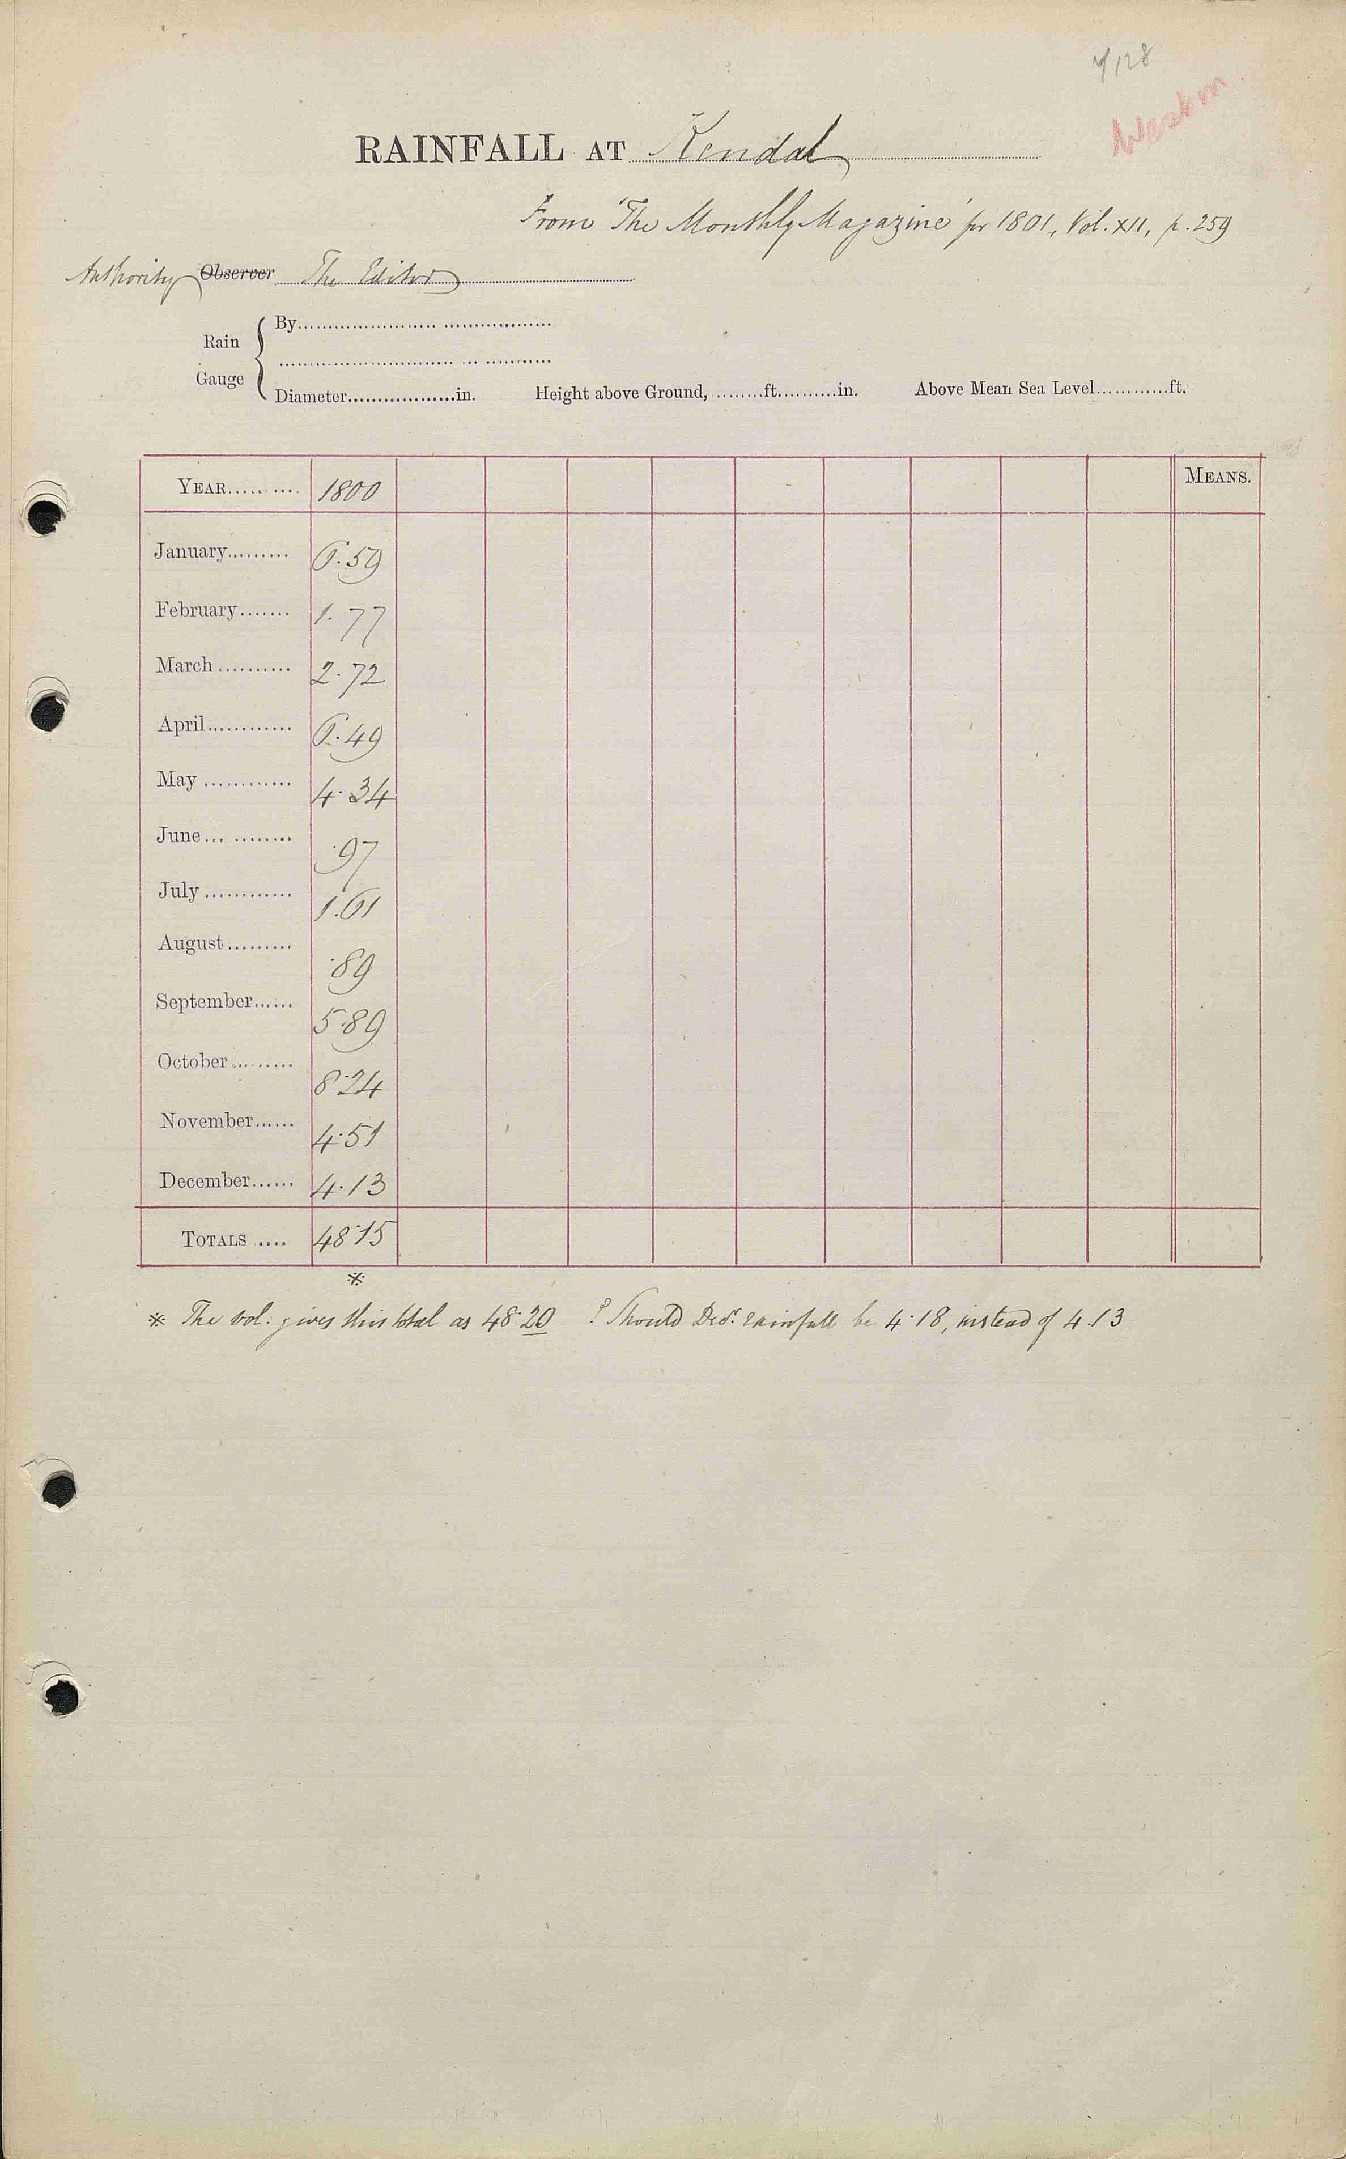 7/128
Westm
RAINFALL AT Kendal
From 'The Monthly Magazine' for 1801, Vol. XII, p. 259
Authority Observer The Editor
By
Rain
Gauge
Diameter..................in. Height above Ground, .........ft..........in. Above Mean Sea Level............ft.
YEAR......... 1800 MEANS.
January......... 6.59
February....... 1.77
March.......... 2.72
April............ 6.49
May............ 4.34
June... ........ .97
July............ 1.61
August......... .89
September...... 5.89
October......... 8.24
November...... 4.51
December...... 4.13
TOTALS .... 48.15
*
* The vol. gives this total as 48.20 ? Should Decr. rainfall be 4.18, instead of 4.13